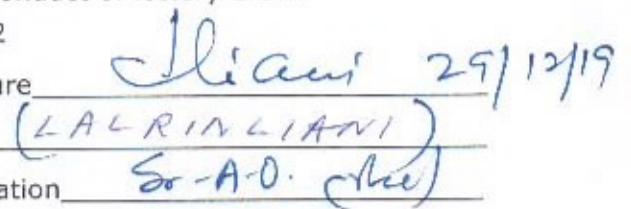 2
re Lliani 29/12/19
(LALRINLIANI)
ation Sr-A.O.